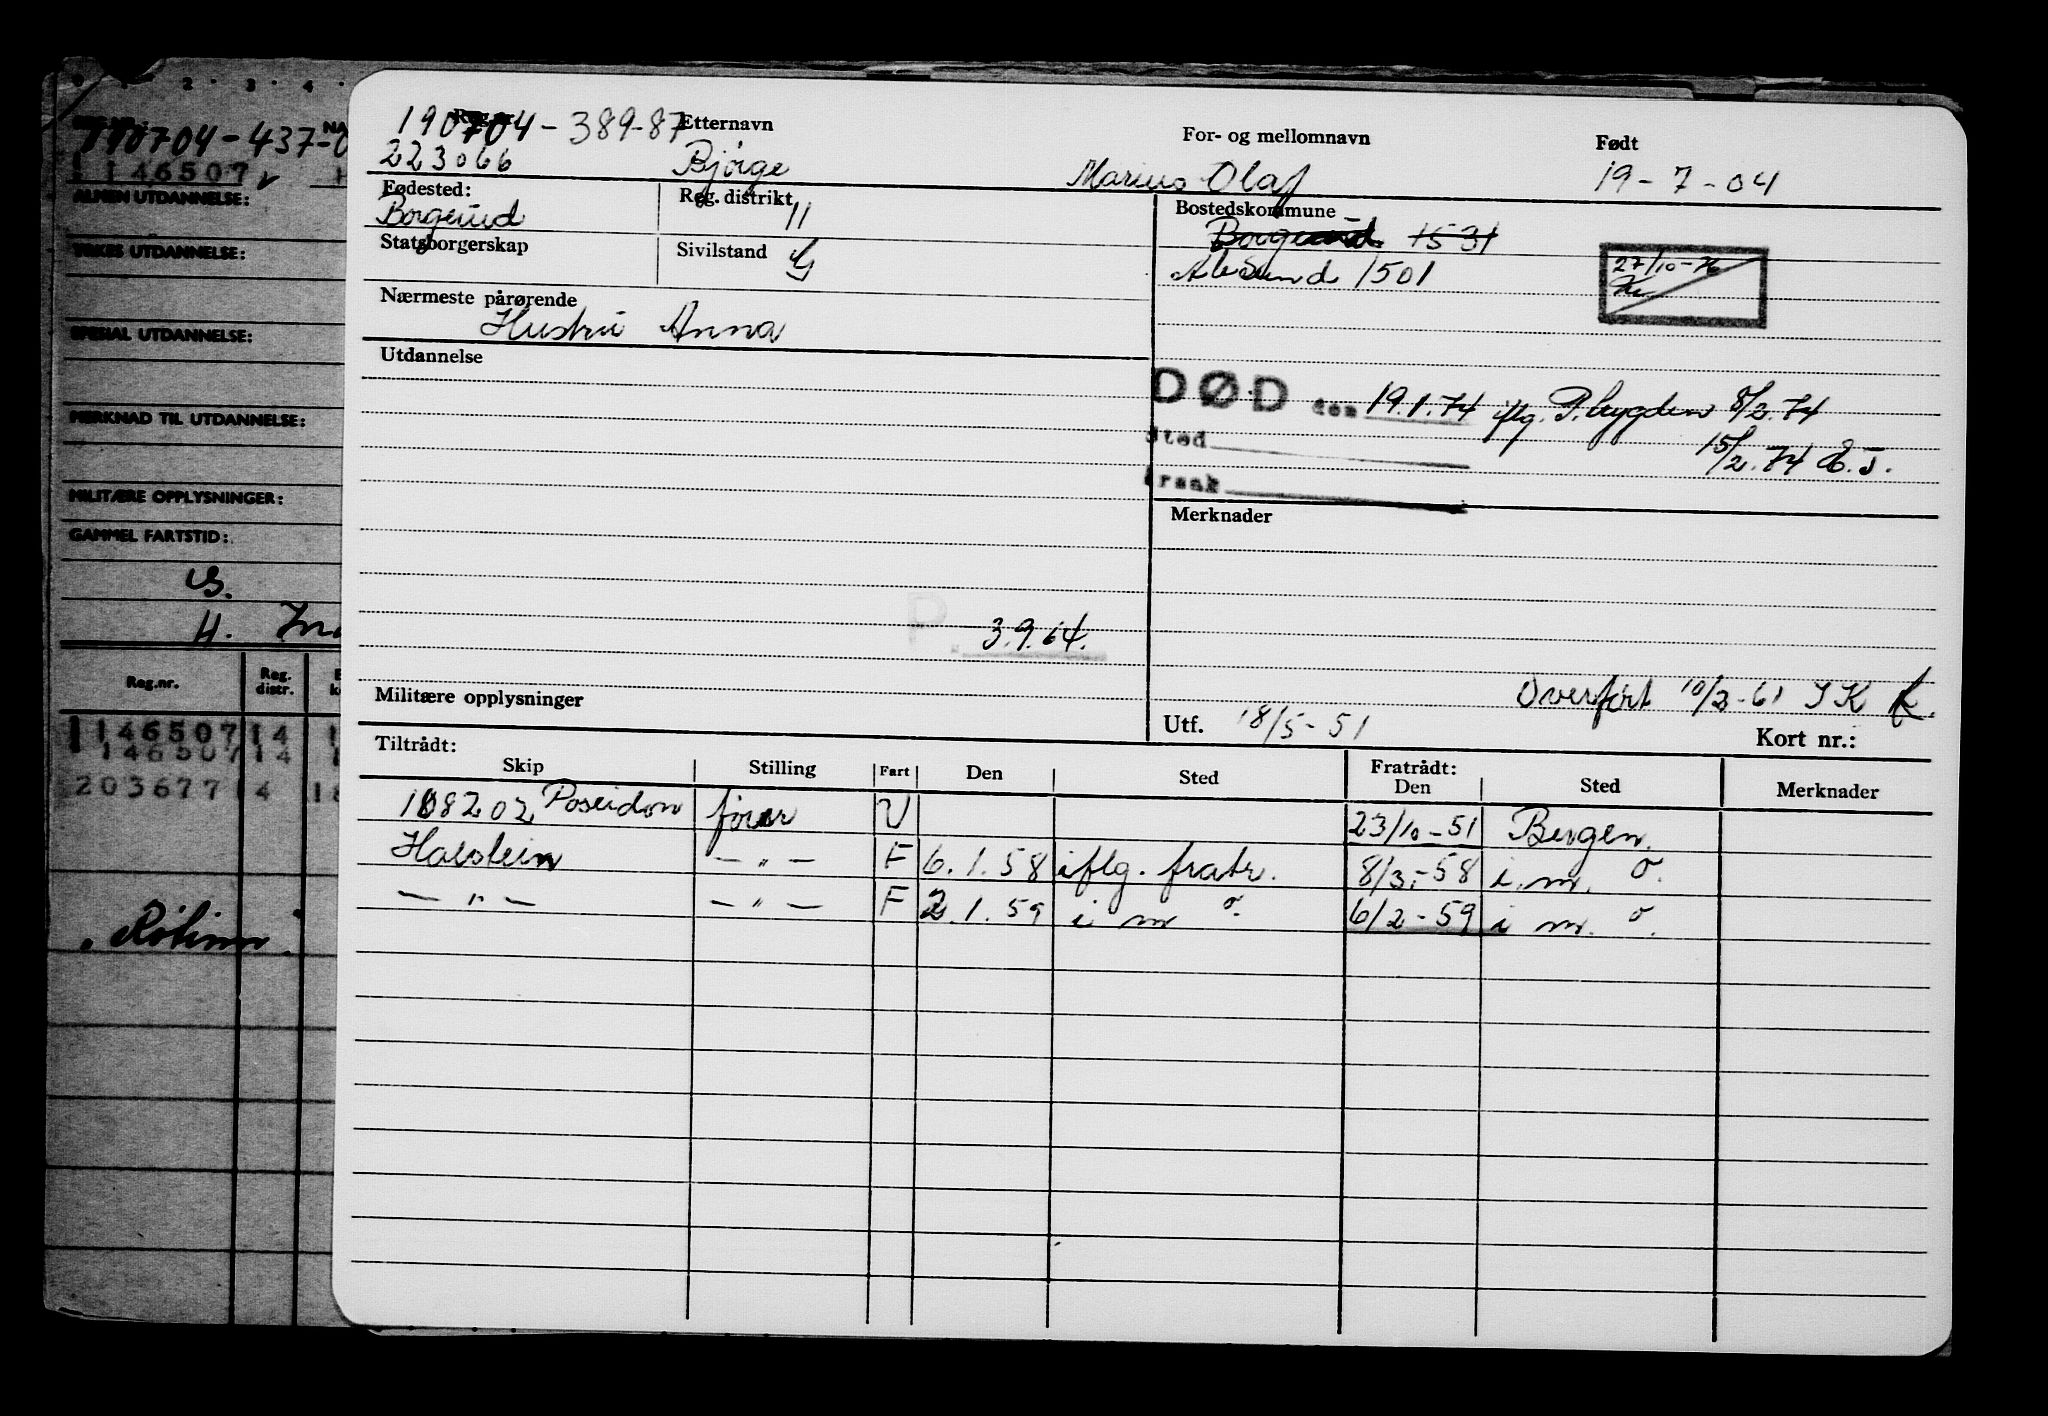 2 3 4
190704-437-0
146507
ALMEN UTDANNELSE:
YRKES UTDANNELSE:
SPESIAL UTDANNELSE:
MERKNAD TIL UTDANNELSE:
MILITÆRE OPPLYSNINGER:
GAMMEL FARTSTID:
H.
Reg.nr. Reg. distr.
1146507 14
146507 14
203677 4 18
190704-389-87 Etternavn For- og mellomnavn Født
223066 Bjørge Marius Olaf 19-7-04
Fødested: Reg. distrikt Bostedskommune
Borgund 11 Borgund 1531
Statsborgerskap Sivilstand G Ålesund 1501
27/10-76
Nærmeste pårørende
Hustru Anna
Utdannelse
DØD den 19.1.74 iflg. P.bygden 8/2.74
Sted 15/2.74 E.J.
Årsak
Merknader
P. 3.9.64.
Militære opplysninger
Overført 10/3-61 JK
Utf. 18/5-51 Kort nr.:
Tiltrådt: Fratrådt:
Skip Stilling Fart Den Sted Den Sted Merknader
108202 Poseidon fører U 23/10-51 Bergen.
Halstein — " — F 6.1.58 iflg. fratr. 8/3.-58 i. m. o.
— " — — " — F 2.1.59 i m o. 6/2-59 i m. o.